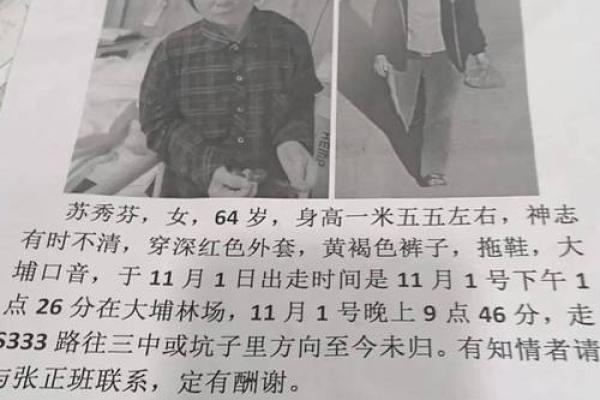 HEMP
苏秀芬，女，64 岁，身高一米五五左右，神志
有时不清，穿深红色外套，黄褐色裤子，拖鞋，大
埔口音，于 11 月 1 日出走时间是 11 月 1 号下午 1
点 26 分在大埔林场，11 月 1 号晚上 9 点 46 分，走
333 路往三中或坑子里方向至今未归。有知情者请
与张正班联系，定有酬谢。